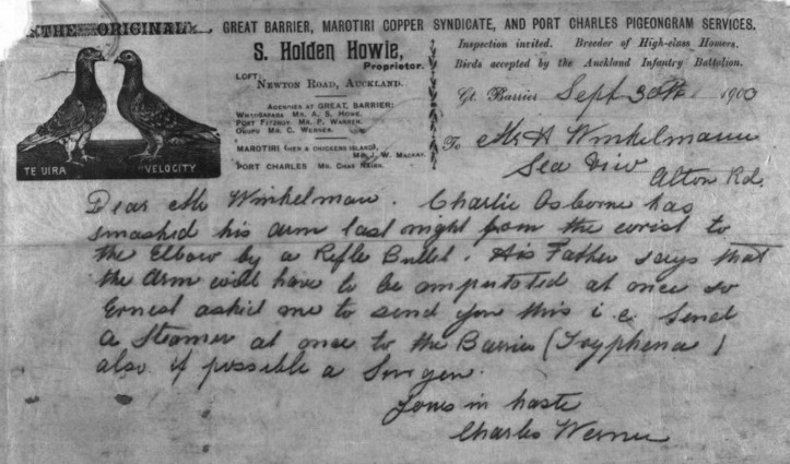 THE ORIGINAL
GREAT BARRIER, MAROTIRI COPPER SYNDICATE, AND PORT CHARLES PIGEONGRAM SERVICES.
S. Holden Howie,
Proprietor.
LOFT:
NEWTON ROAD, AUCKLAND.
AGENCIES AT GREAT BARRIER:
WHANGAPARA MR. A. S. HOWE.
PORT FITZROY MR. P. WARREN.
OKUPU MR. C. WERNER.
MAROTIRI (HEN & CHICKENS ISLAND),
MR. J. W. MACKAY.
PORT CHARLES MR. CHAS NAIRN.
TE UIRA
VELOCITY
Inspection invited. Breeder of High-class Homers.
Birds accepted by the Auckland Infantry Battalion.
Gt. Barrier Sept 30th 1900
To Mr H Winkelmann
Sea View
Alton Rd.
Dear Mr Winkelman. Charlie Osborne has
smashed his arm last night from the wrist to
the Elbow by a Rifle Bullet. His Father says that
the Arm will have to be amputated at once so
Ernest asked me to send you this i.e. Send
a Steamer at once to the Barrier (Tryphena)
also if possible a Surgen.
Yours in haste
Charles Werner